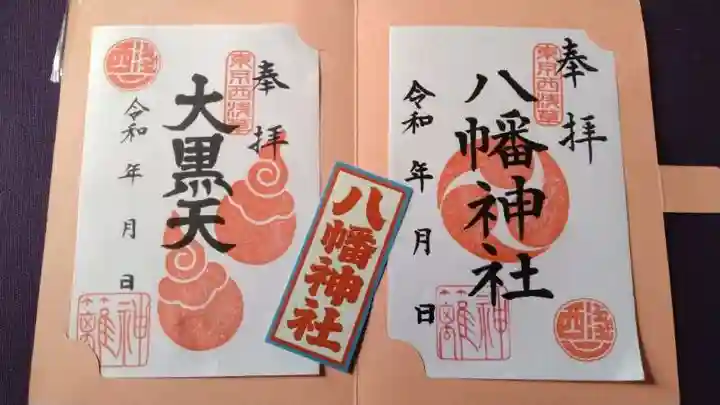 奉拝
八幡神社
令和 年 月 日
東京西浅草
西浅
八幡神社
奉拝
大黒天
令和 年 月 日
東京西浅草
西浅